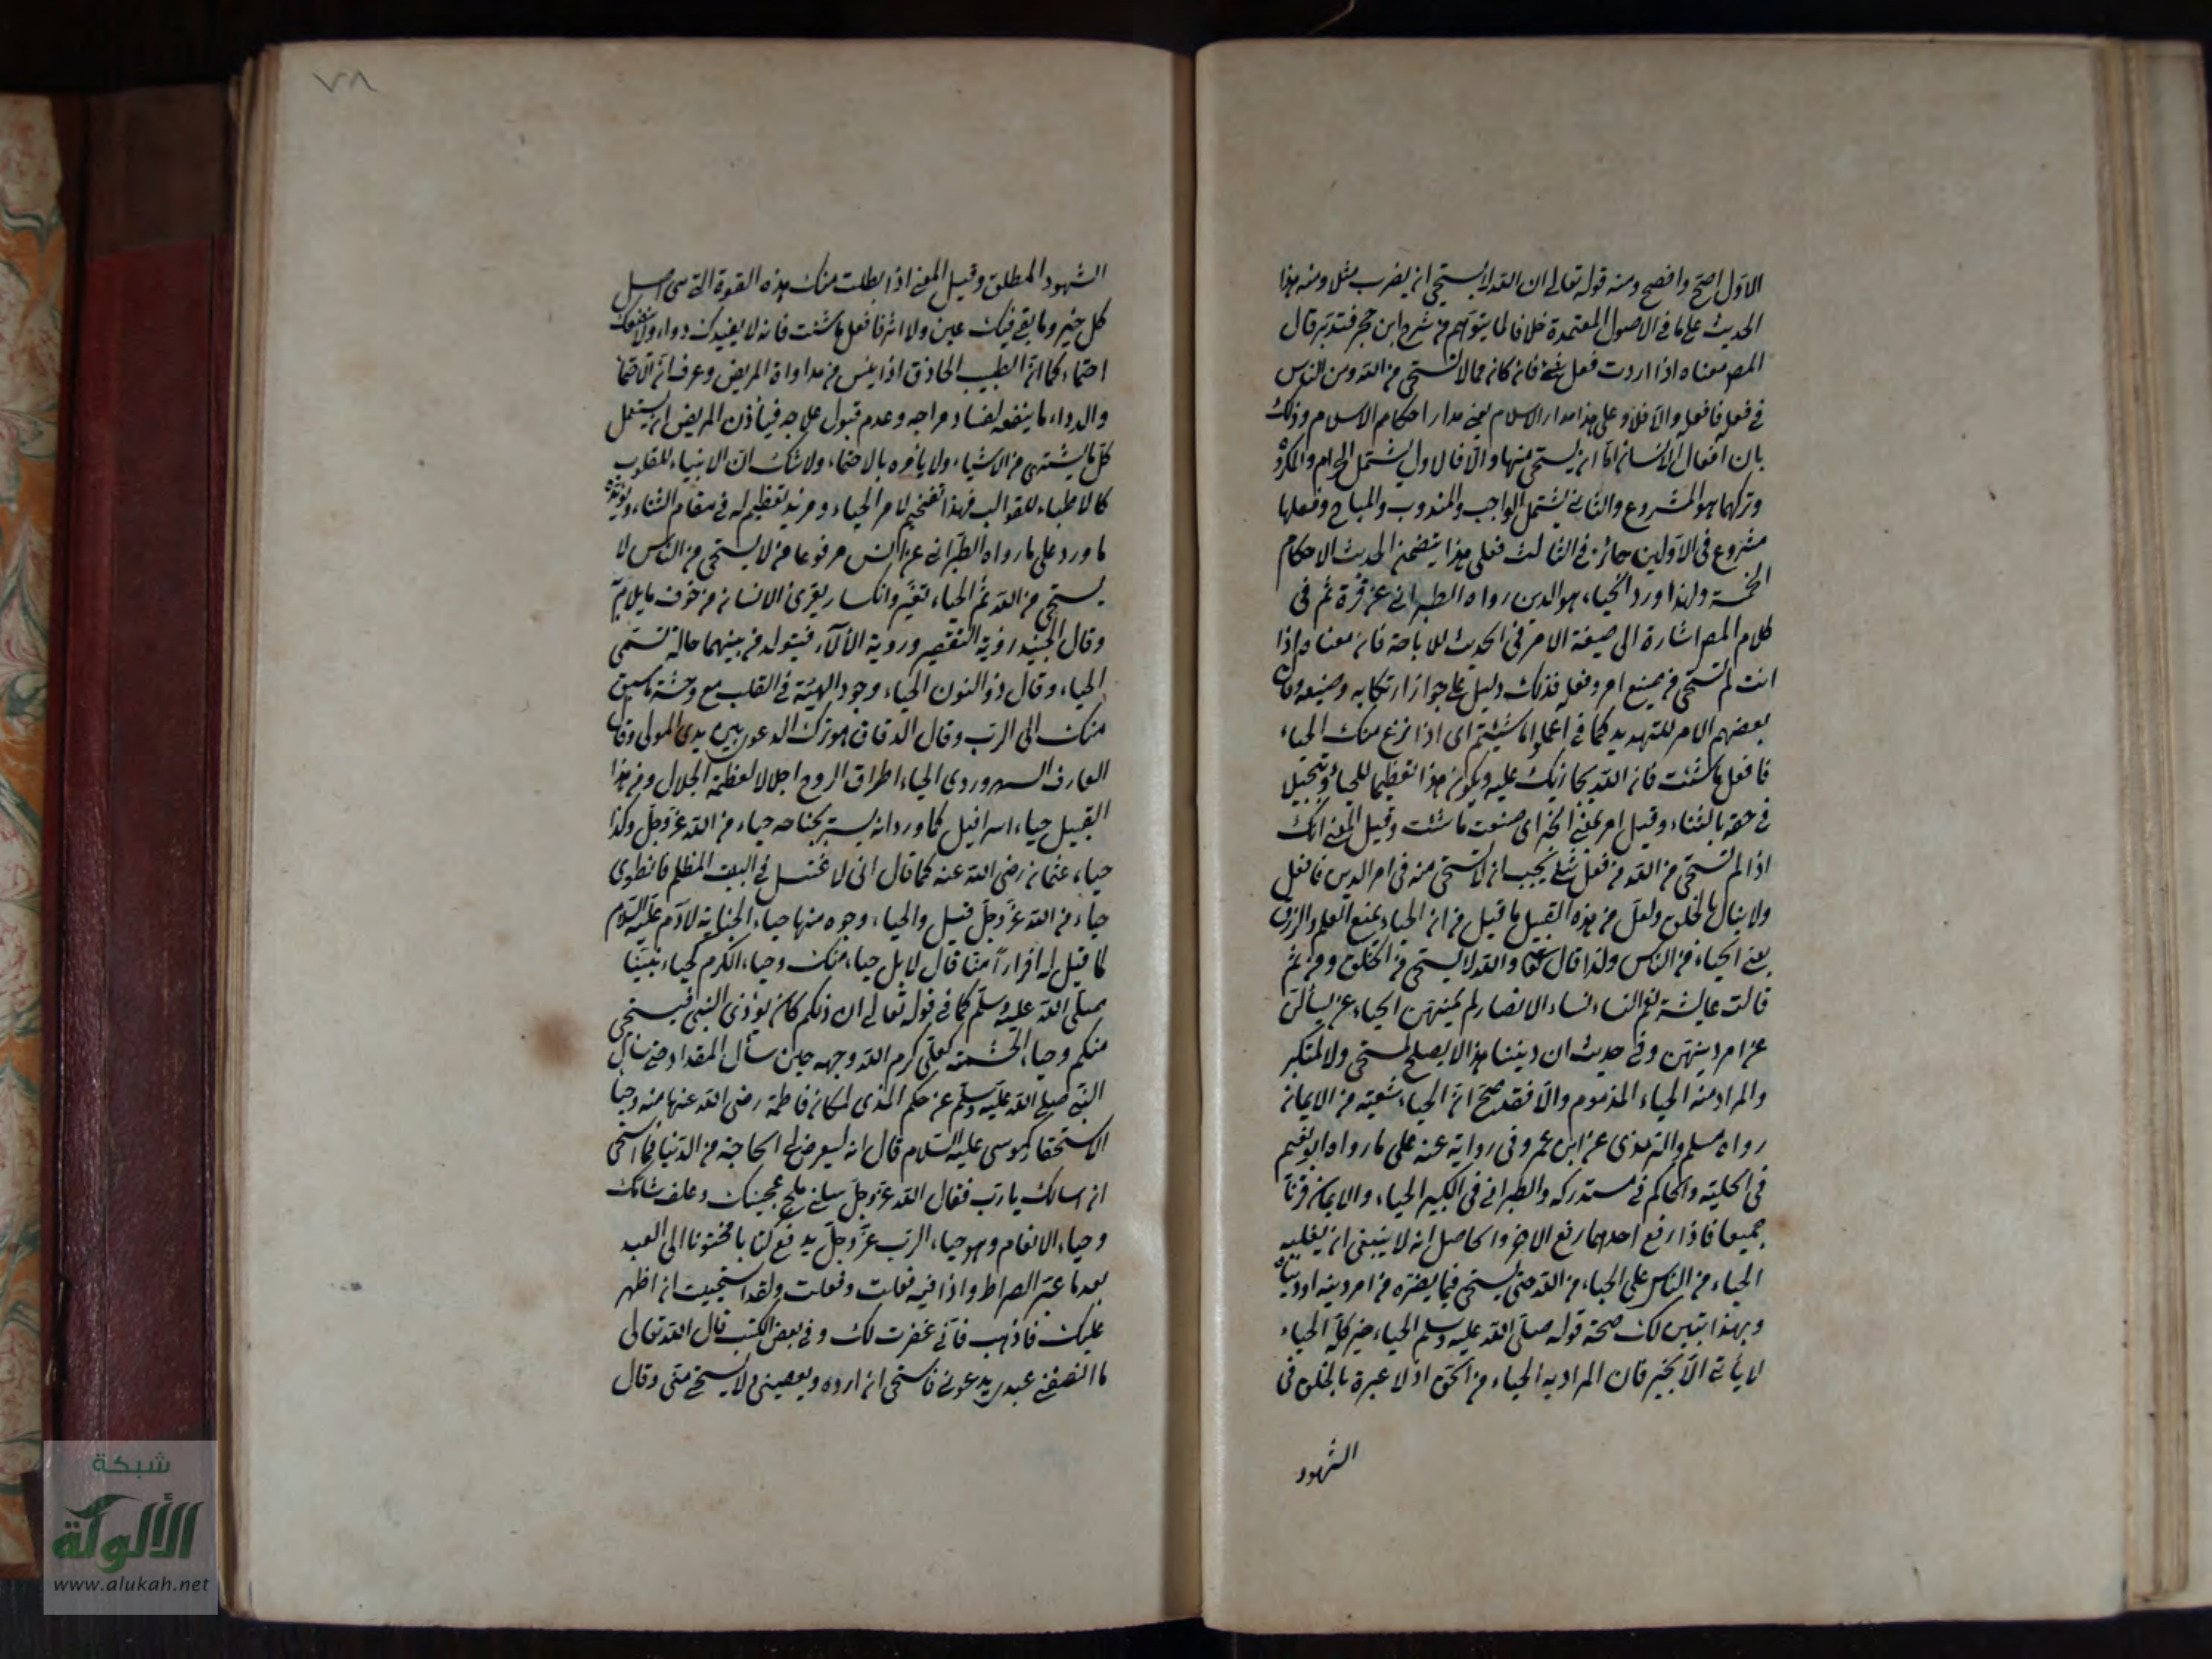 الاول اصح وافصح ومنه قوله تعالى ان الله لا يستحيى ان يضرب مثلا ومنه هذا
الحديث على ما فى الاصول المعتمدة خلافا لما يتوهم من شرح ابن حجر فتدبر قال
المص معناه اذا اردت فعل شئ فان كان مما لا تستحى من الله ومن الناس
فى فعله فافعله والا فلا وعلى هذا مدار الاسلام يعنى مدار احكام الاسلام وذلك
بان افعال الانسان اما ان يستحى منها والا فالاول يشتمل الحرام والمكروه
وتركهما هو المشروع والثانى يشتمل الواجب والمندوب والمباح وفعلها
مشروع فى الاولين جائز فى الثالث فعلى هذا يتضمن الحديث الاحكام
الخمسة ولهذا ورد الحياء هو الدين رواه الطبرانى عن قرة ثم فى
كلام المص اشارة الى صيغة الامر فى الحديث للاباحة فان معناه اذا
انت لم تستحى من صنيع امر وفعله فذلك دليل على جواز ارتكابه وصنيعه وقال
بعضهم الامر للتهديد كما فى اعملوا ما شئتم اى اذا نزع منك الحياء
فافعل ما شئت فان الله يجازيك عليه ويكون هذا تعظيما للحياء وتبجيلا
فى حقه بالثناء وقيل امر بمعنى الخبر اى صنعت ما شئت وقيل المعنى انك
اذا لم تستحى من الله من فعل شئ يجب ان لا تستحى منه فى امر الدين فافعل
ولا تبال بالخلق ولعل من هذه القبيل ما قيل من ان الحياء يمنع العلم والرزق
يعنى الحياء من الناس ولذا قال تعالى والله لا يستحى من الحق ومن ثم
قالت عايشة نعم النساء نساء الانصار لم يمنهن الحياء عن يسألن
عن امر دينهن وفى حديث ان ديننا هذا لا يصلح لمستحى ولا لمتكبر
والمراد منه الحياء المذموم والا فقد صح ان الحياء شعبة من الايمان
رواه مسلم والترمذى عن ابن عمر وفى رواية عنه على ما رواه ابو نعيم
فى الحلية والحاكم فى مستدركه والطبرانى فى الكبير الحياء والايمان قرنا
جميعا فاذا رفع احدهما رفع الاخر والحاصل انه لا ينبغى ان يغلبه
الحياء من الناس على الحياء من الله حتى يستحى فيما يضره من امر دينه او دنياه
وبهذا تبين لك صحة قوله صلى الله عليه وسلم الحياء خير كله الحياء
لا يأتى الا بخير فان المراد به الحياء من الحق اذ لا عبرة بالخلق فى
الشهود
٧٨
الشهود المطلق وقيل المعنى اذا بطلت منك هذه القوة التى هى اصل
كل خير وما بقى فيك عين ولا اثر فافعل ما شئت فانه لا يفيدك دواء ولا ينفعك
احتماء كما ان الطبيب الحاذق اذا يئس من مداواة المريض وعرف ان الاحتماء
والدواء ما ينفعه لفساد مزاجه وعدم قبول علاجه فيأذن المريض ان يستعمل
كل ما يشتهى من الاشياء ولا يأمره بالاحتماء ولا شك ان الانبياء للقلوب
كالاطباء للقوالب فهذا تفخيم لامر الحياء ومزيد تعظيم له فى مقام الثناء ويؤيده
ما ورد على ما رواه الطبرانى عن انس مرفوعا من لا يستحى من الناس لا
يستحى من الله ثم الحياء تغير وانكسار يعترى الانسان من خوف ما يلام
وقال الجنيد رؤية التقصير وروية الآلآء فيتولد من بينهما حالة تسمى
الحياء وقال ذو النون الحياء وجود الهيبة فى القلب مع وحشة ما سبق
منك الى الرب وقال الدقاق هو ترك الدعوى بين يدى المولى وقال
العارف السهروردى الحياء اطراق الروح اجلالا لعظمة الجلال ومن هذا
القبيل حياء اسرافيل كما ورد انه يستر بجناحه حياء من الله عز وجل وكذا
حياء عثمان رضى الله عنه كما قال انى لاغتسل فى البيت المظلم فانطوى
حياء من الله عز وجل قيل والحياء وجوه منها حياء الجناية لآدم عليه السلام
لما قيل له افرارا منا قال لا بل حياء منك وحياء الكرم كحياء نبينا
صلى الله عليه وسلم كما فى قوله تعالى ان ذلكم كان يؤذى النبى فيستحيى
منكم وحياء الحشمة كعلى كرم الله وجهه حين سأل المقداد حتى سأل
النبى صلى الله عليه وسلم عن حكم المذى لمكان فاطمة رضى الله عنها منه وحياء
الاستحقار كموسى عليه السلام قال انه ليعرض لى الحاجة من الدنيا فاستحى
ان اسالك يا رب فقال الله عز وجل سلنى ملح عجينك وعلف شاتك
وحياء الانعام وهو حياء الرب عز وجل يدفع كتابا مختوما الى العبد
بعد ما عبر الصراط واذا فيه فعلت وفعلت ولقد استحييت ان اظهر
عليك فاذهب فانى غفرت لك وفى بعض الكتب قال الله تعالى
ما انصفنى عبدى يدعونى فاستحى ان ارده ويعصينى ولا يستحى منى وقال
شبكة
الألوكة
www.alukah.net